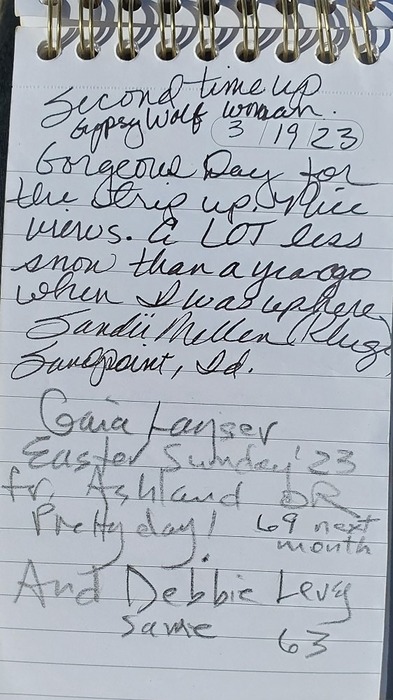 Second time up
Gypsy Wolf woman.
3/19/23
Gorgeous Day for
the trip up. Nice
views. A LOT less
snow than a year ago
when I was up here.
Sandii Mellen (Klug)
Sandpoint, Id.
Gaia Layser
Easter Sunday '23
fr. Ashland OR
Pretty day! 69 next
month
And Debbie Levy
same 63